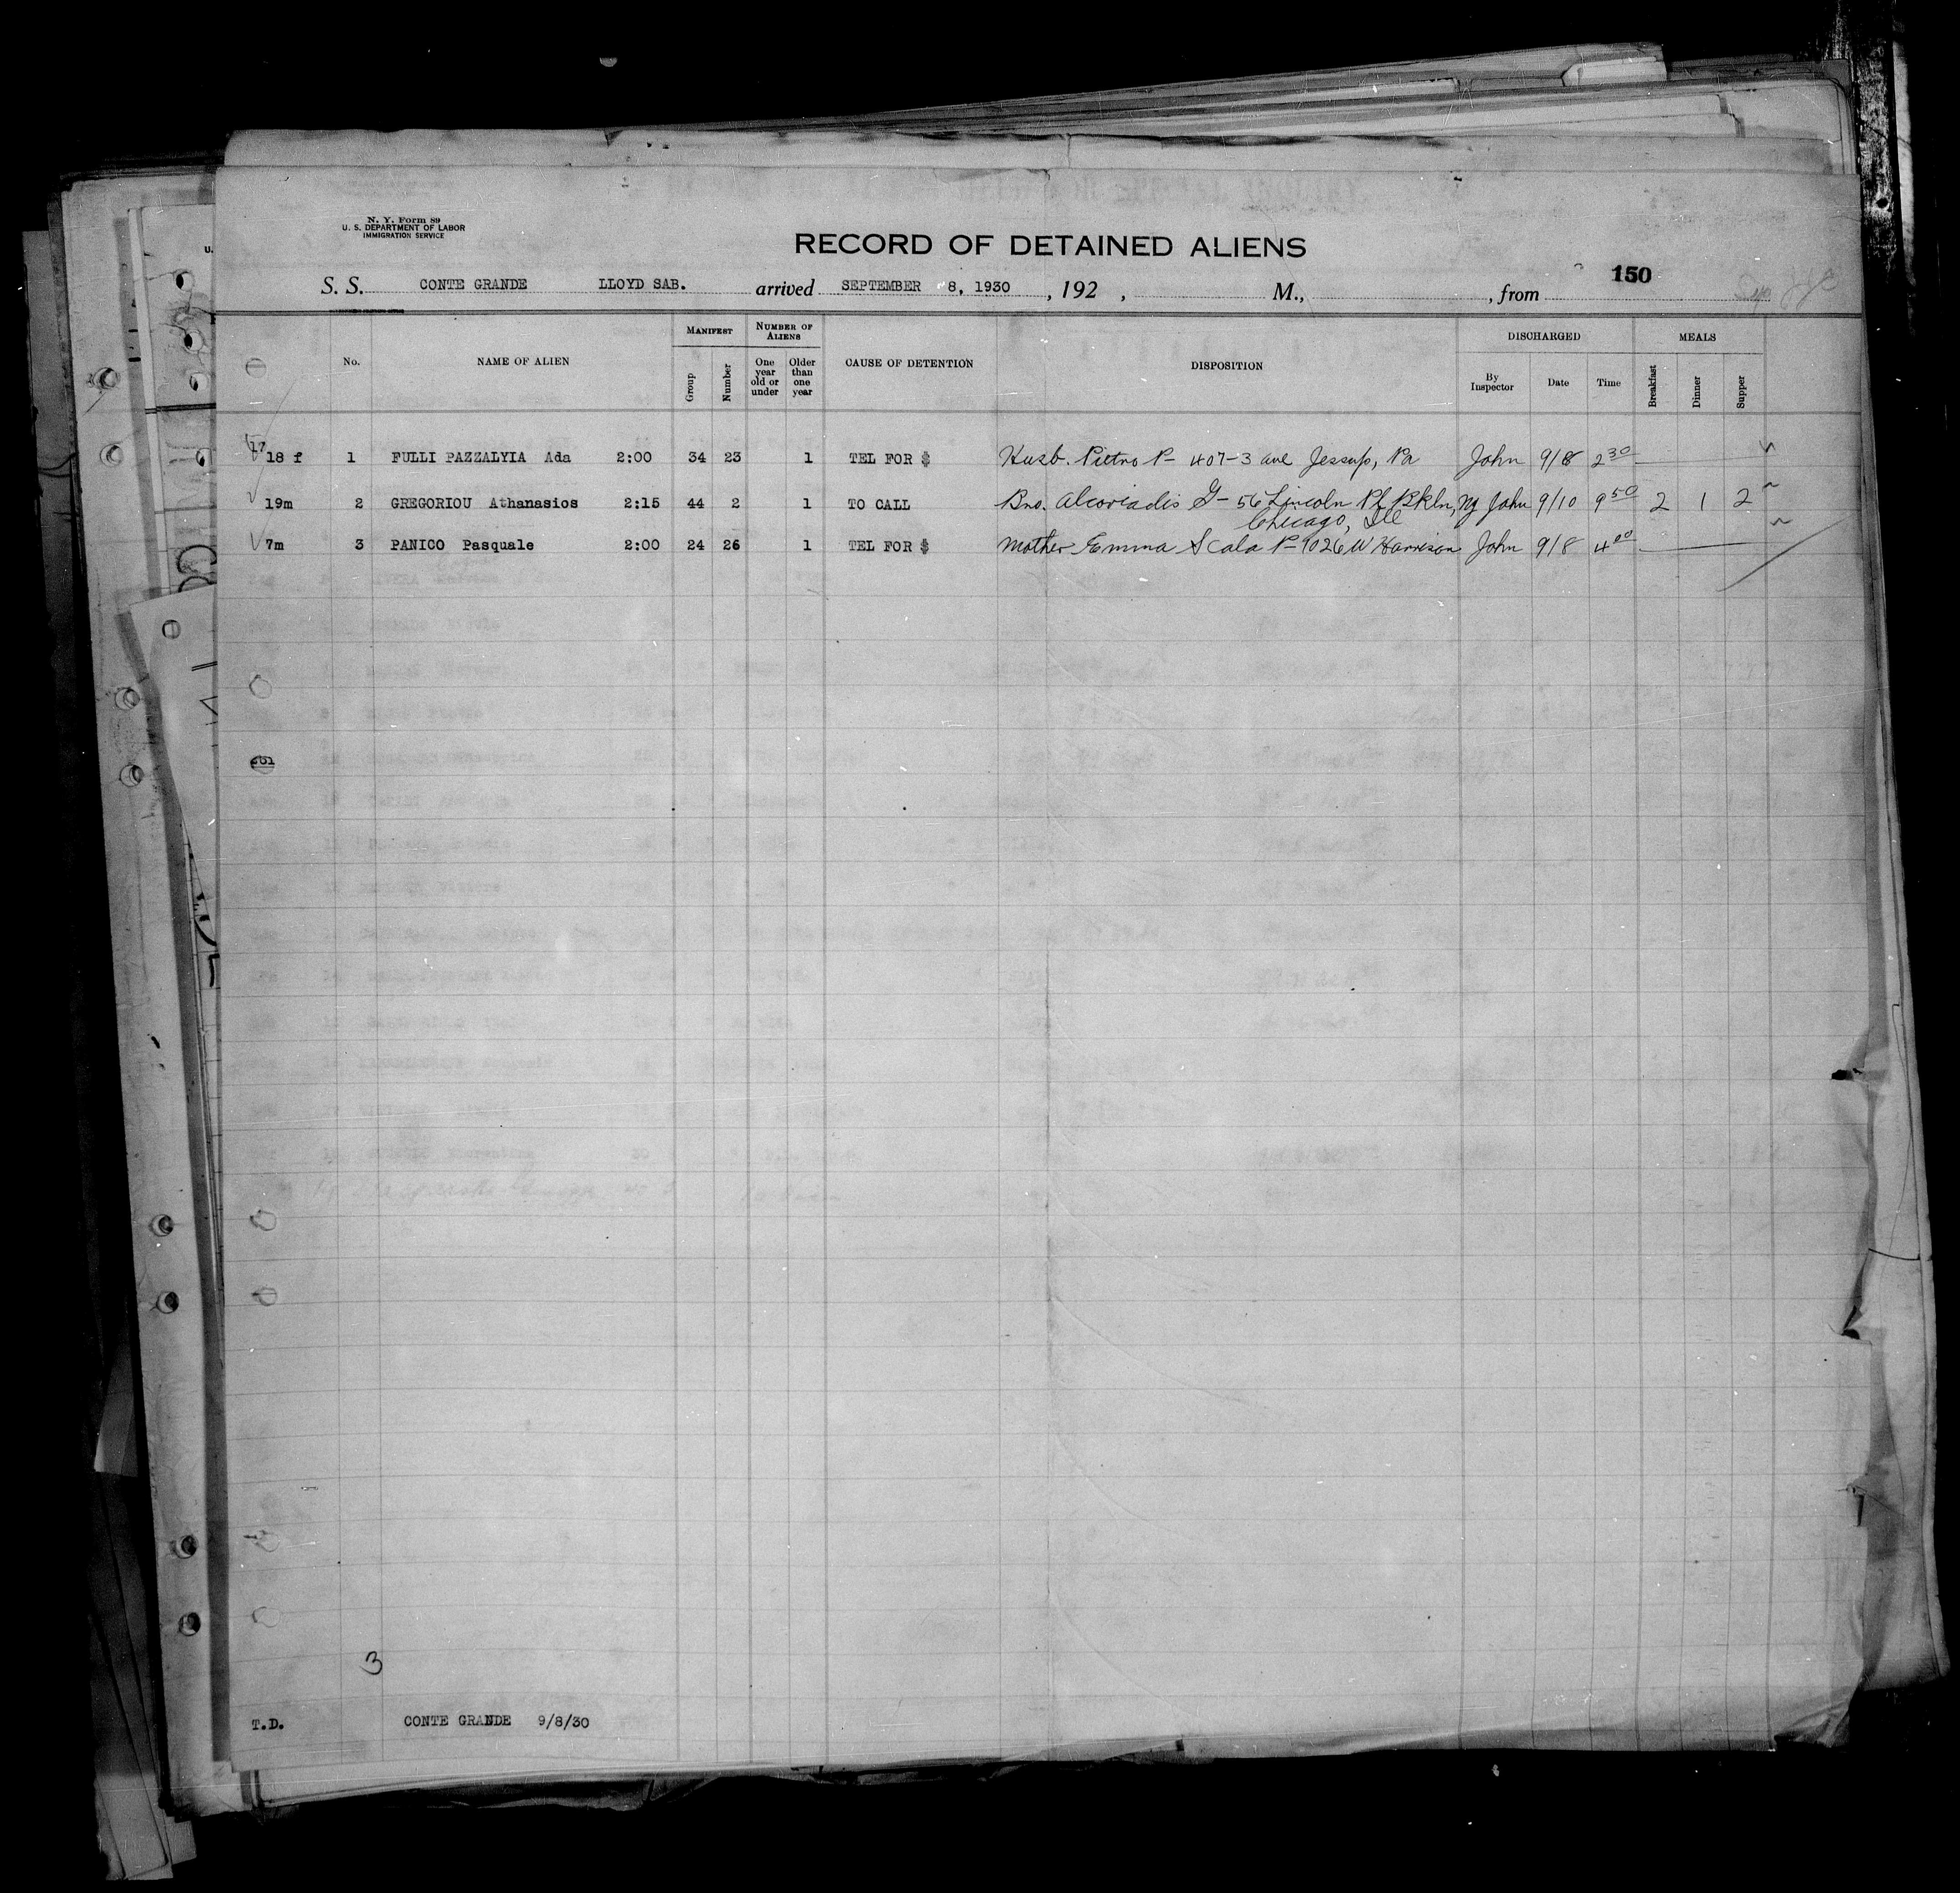 N. Y. Form 89
U. S. DEPARTMENT OF LABOR
IMMIGRATION SERVICE
RECORD OF DETAINED ALIENS
150
S. S. CONTE GRANDE LLOYD SAB. arrived SEPTEMBER 8, 1930 , 192 , M., , from
No. NAME OF ALIEN MANIFEST Group Number NUMBER OF ALIENS One year old or under Older than one year CAUSE OF DETENTION DISPOSITION DISCHARGED By Inspector Date Time MEALS Breakfast Dinner Supper
17
18 f 1 FULLI PAZZALYIA Ada 2:00 34 23 1 TEL FOR $ Husb. Pietro P- 407-3 ave Jessup, Pa John 9/8 2 30
19m 2 GREGORIOU Athanasios 2:15 44 2 1 TO CALL Bro. G- 56 Lincoln Pl Bkln, NY John 9/10 9 50 2 1 2
Chicago, Ill
7m 3 PANICO Pasquale 2:00 24 26 1 TEL FOR $ Mother Emma Scala P- 1026 W Harrison John 9/8 4 00
3
T.D. CONTE GRANDE 9/8/30